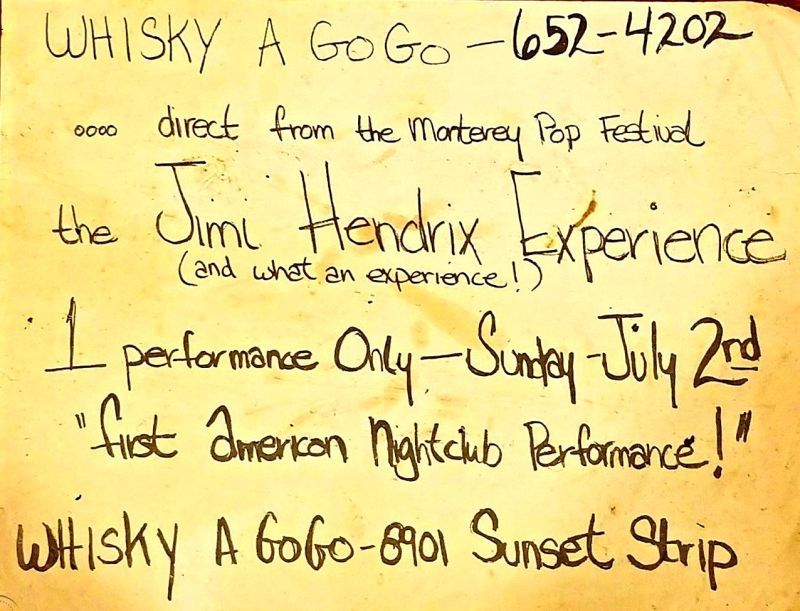 WHISKY A GoGo - 652-4202
.... direct from the Monterey Pop Festival
the Jimi Hendrix Experience
(and what an experience!)
1 performance Only - Sunday - July 2nd
"first american Nightclub Performance!"
WHISKY A GoGo - 8901 Sunset Strip